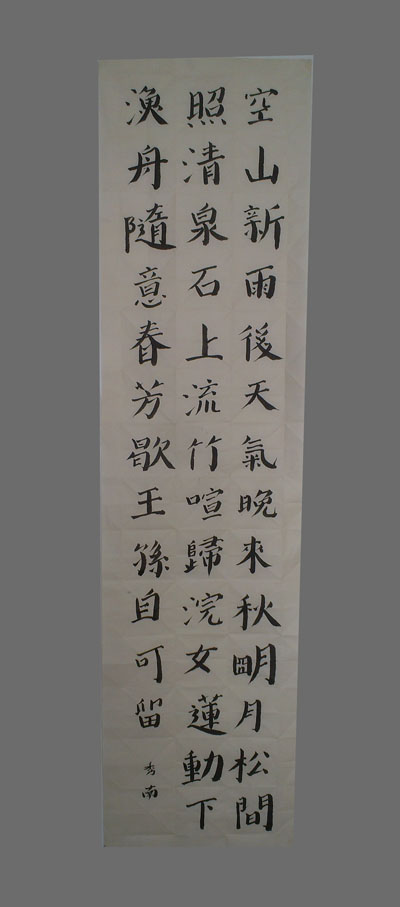 空山新雨後天氣晚來秋朙月松間
照清泉石上流竹喧歸浣女蓮動下
漁舟隨意春芳歇王孫自可留
秀南